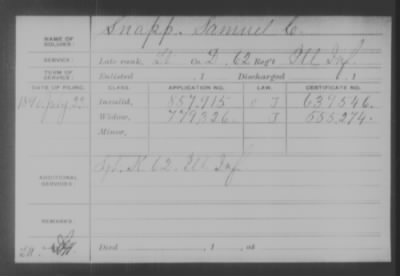 NAME OF SOLDIER: Snapp, Samuel C.
SERVICE: Late rank, Lt Co. D, 62 Reg't Ill Inf.
TERM OF SERVICE: Enlisted , 1 Discharged , 1
DATE OF FILING. CLASS. APPLICATION NO. LAW. CERTIFICATE NO.
Invalid, 857,915 J 639,546.
Widow, 779,326 J 555,274.
Minor,
ADDITIONAL SERVICES: K 62. Ill Inf
REMARKS:
Died , 1 , at